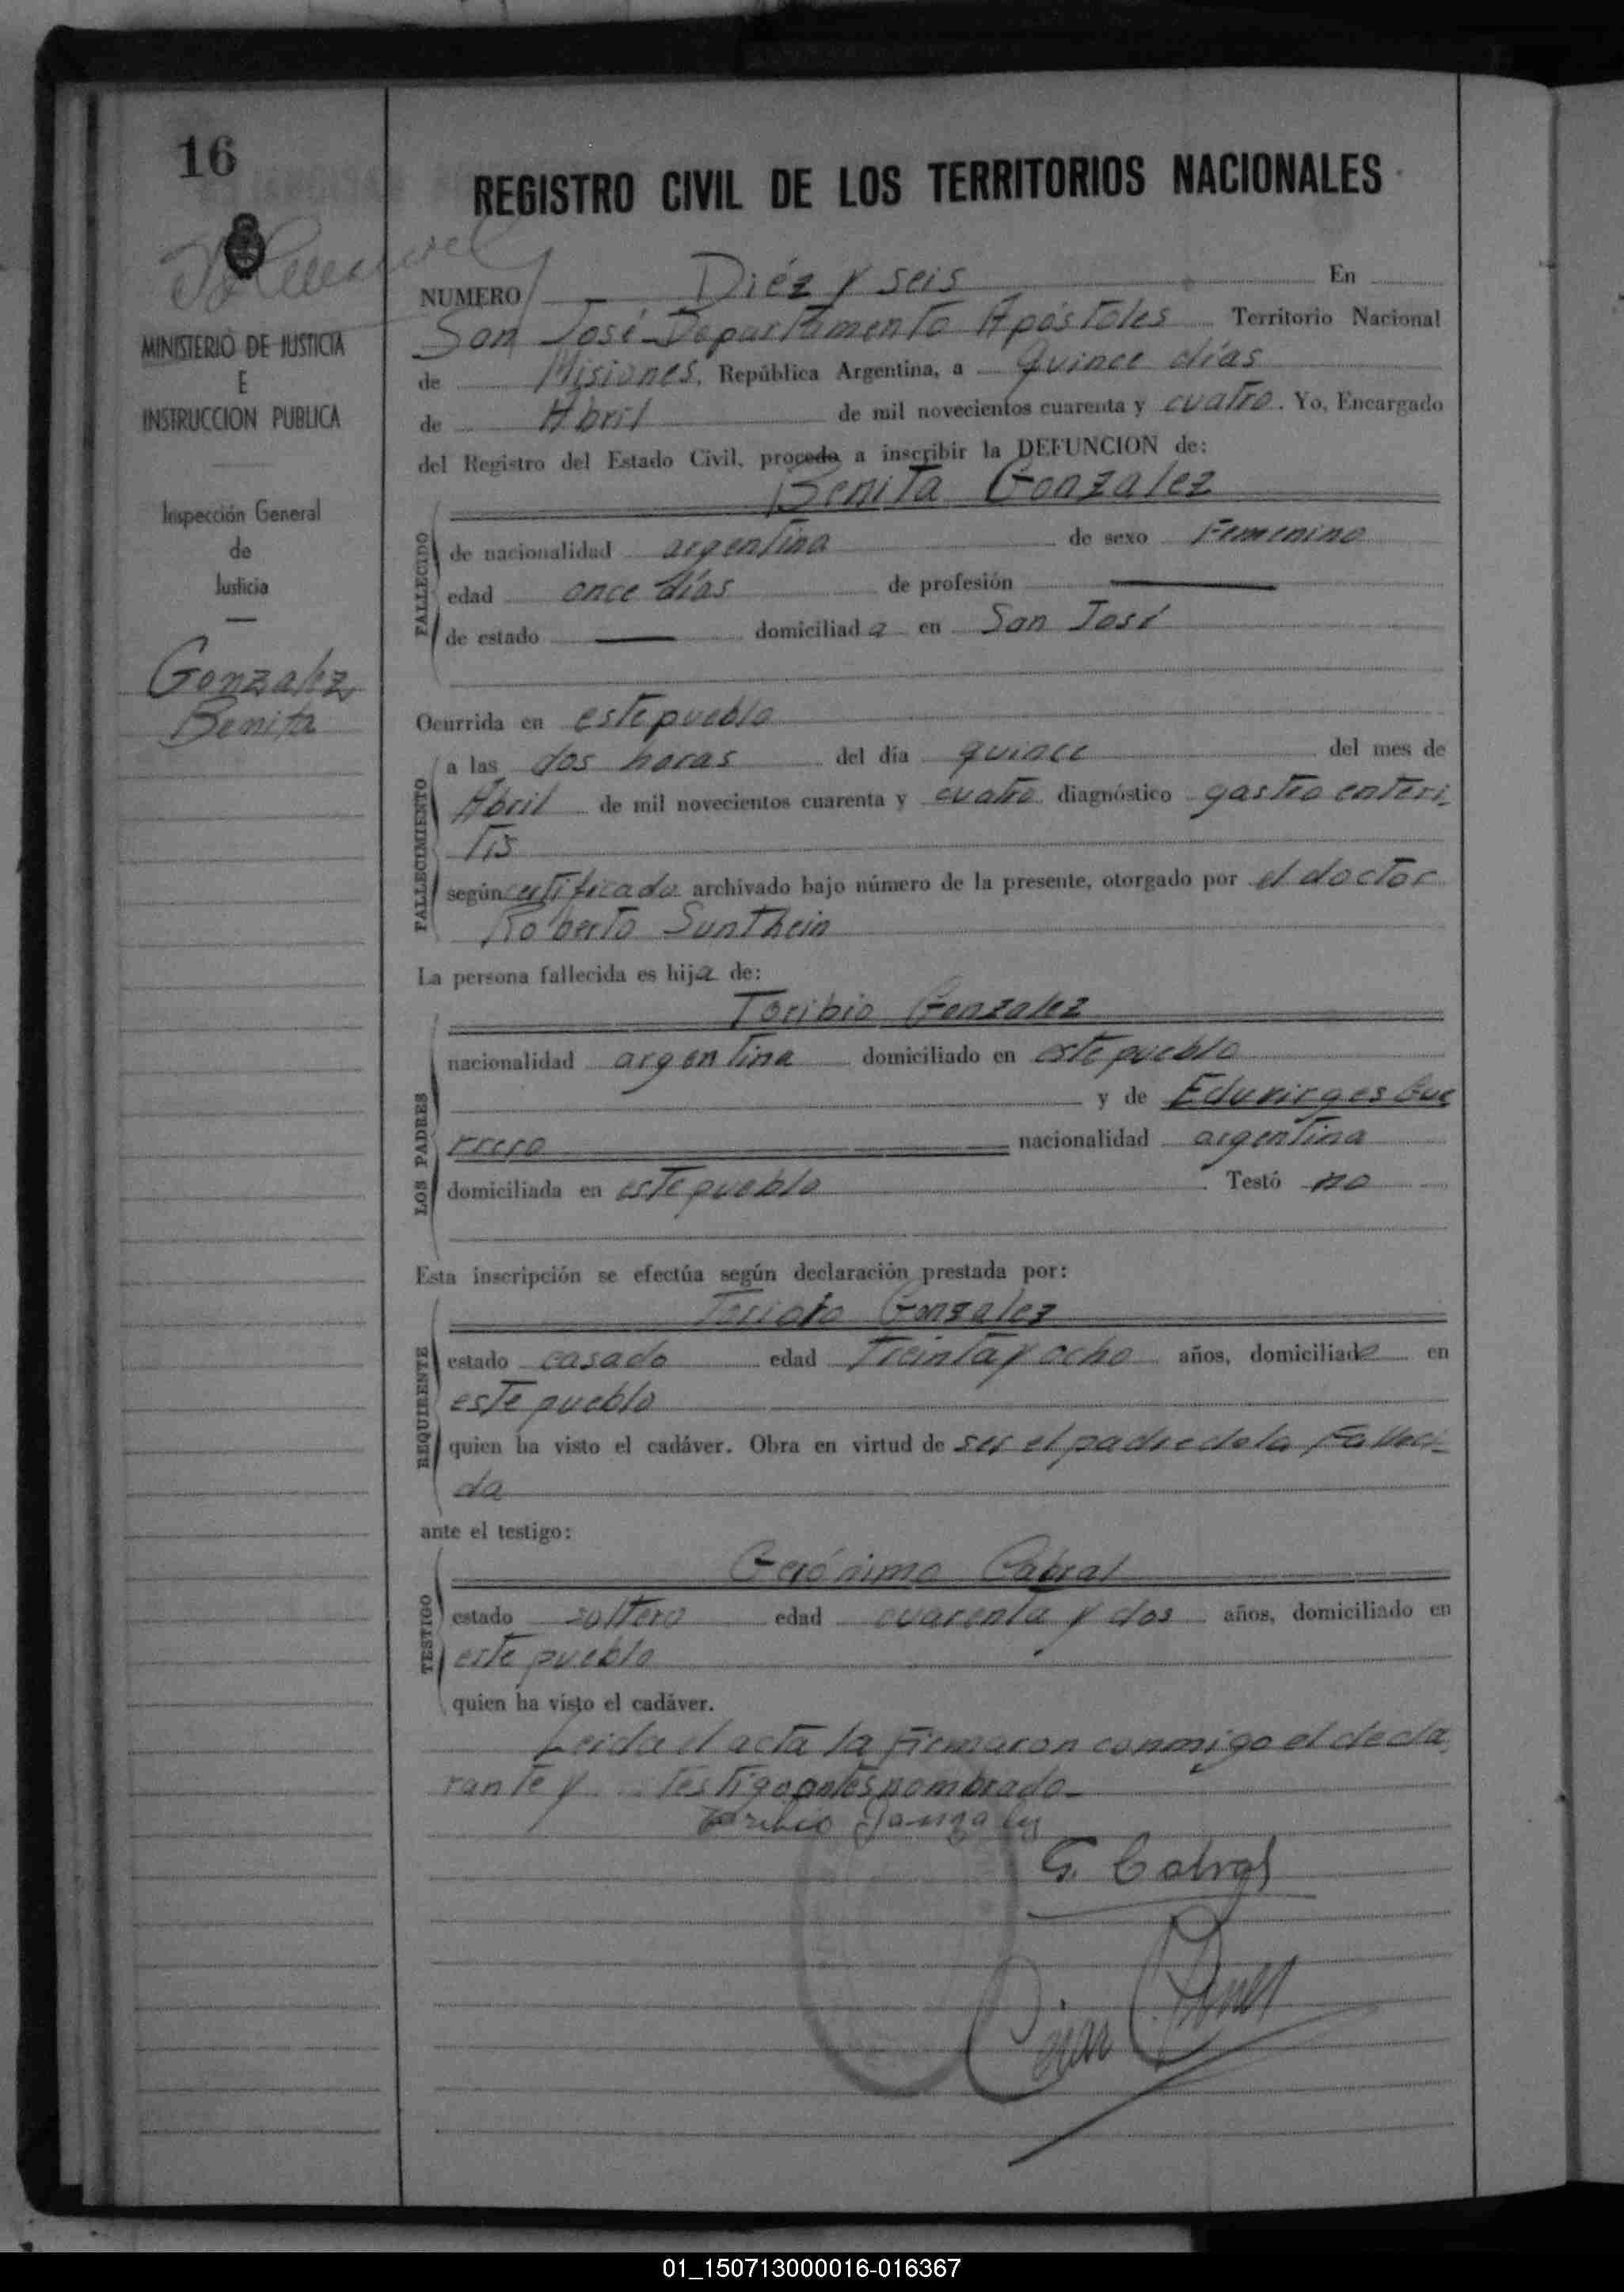 16
REGISTRO CIVIL DE LOS TERRITORIOS NACIONALES
MINISTERIO DE JUSTICIA
E
INSTRUCCION PUBLICA
Inspección General
de
Justicia
Gonzalez
Benita
NUMERO Diéz y seis En
San José Departamento Apóstoles Territorio Nacional
de Misiones, República Argentina, a quince días
de Abril de mil novecientos cuarenta y cuatro. Yo, Encargado
del Registro del Estado Civil, procedo a inscribir la DEFUNCION de:
Benita Gonzalez
FALLECIDO
de nacionalidad argentina de sexo Femenino
edad once días de profesión
de estado domiciliada en San José
Ocurrida en este pueblo
FALLECIMIENTO
a las dos horas del día quince del mes de
Abril de mil novecientos cuarenta y cuatro diagnóstico gastro enteri-
tis
según certificado archivado bajo número de la presente, otorgado por el doctor
Roberto Sunthein
La persona fallecida es hija de:
Toribio Gonzalez
LOS PADRES
nacionalidad argentina domiciliado en este pueblo
y de Eduvirges Gue
rrero nacionalidad argentina
domiciliada en este pueblo Testó no
Esta inscripción se efectúa según declaración prestada por:
Toribio Gonzalez
REQUIRENTE
estado casado edad treinta y ocho años, domiciliado en
este pueblo
quien ha visto el cadáver. Obra en virtud de ser el padre de la Falleci-
da
ante el testigo:
Gerónimo Cabral
TESTIGO
estado soltero edad cuarenta y dos años, domiciliado en
este pueblo
quien ha visto el cadáver.
Leida el acta la firmaron conmigo el decla
rante y testigo antes nombrado-
Toribio Gonzalez
G. Cabral
01_150713000016-016367